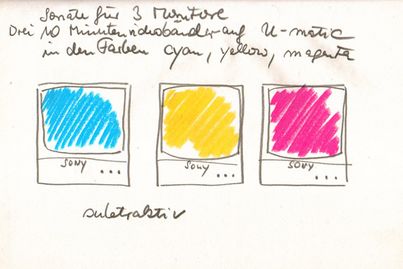 Sonate für 3 Monitore
Drei 10 Minuten videobänder auf U-matic
in den Farben cyan, yellow, magenta
SONY SONY SONY
subtraktiv